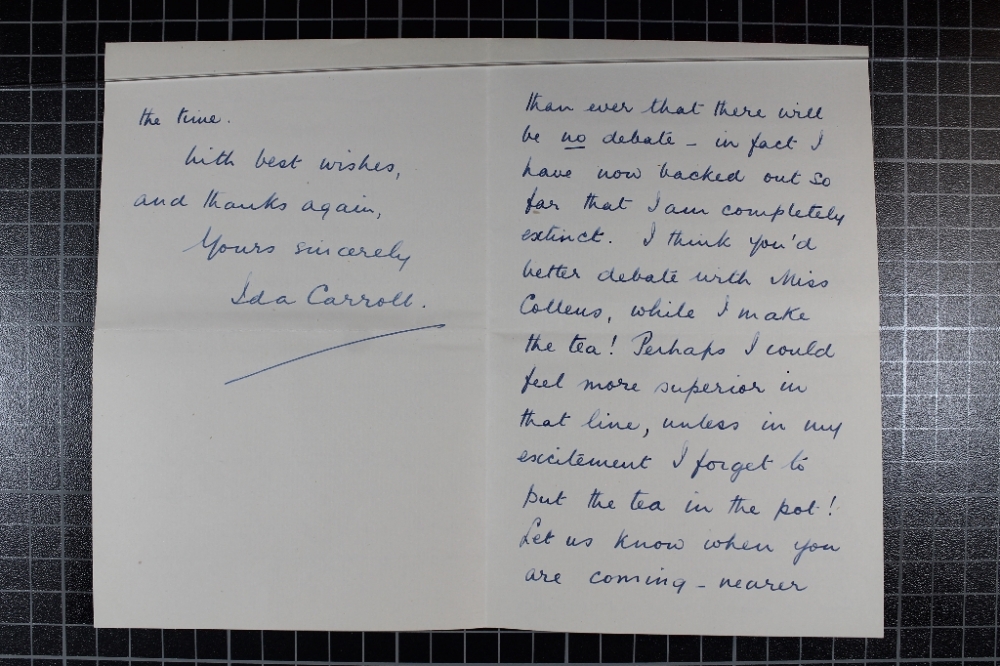 than ever that there will
be no debate – in fact I
have now backed out so
far that I am completely
extinct. I think you'd
better debate with Miss
Collens, while I make
the tea! Perhaps I could
feel more superior in
that line, unless in my
excitement I forget to
put the tea in the pot!
Let us know when you
are coming – nearer
the time.
With best wishes,
and thanks again,
Yours sincerely
Ida Carroll.